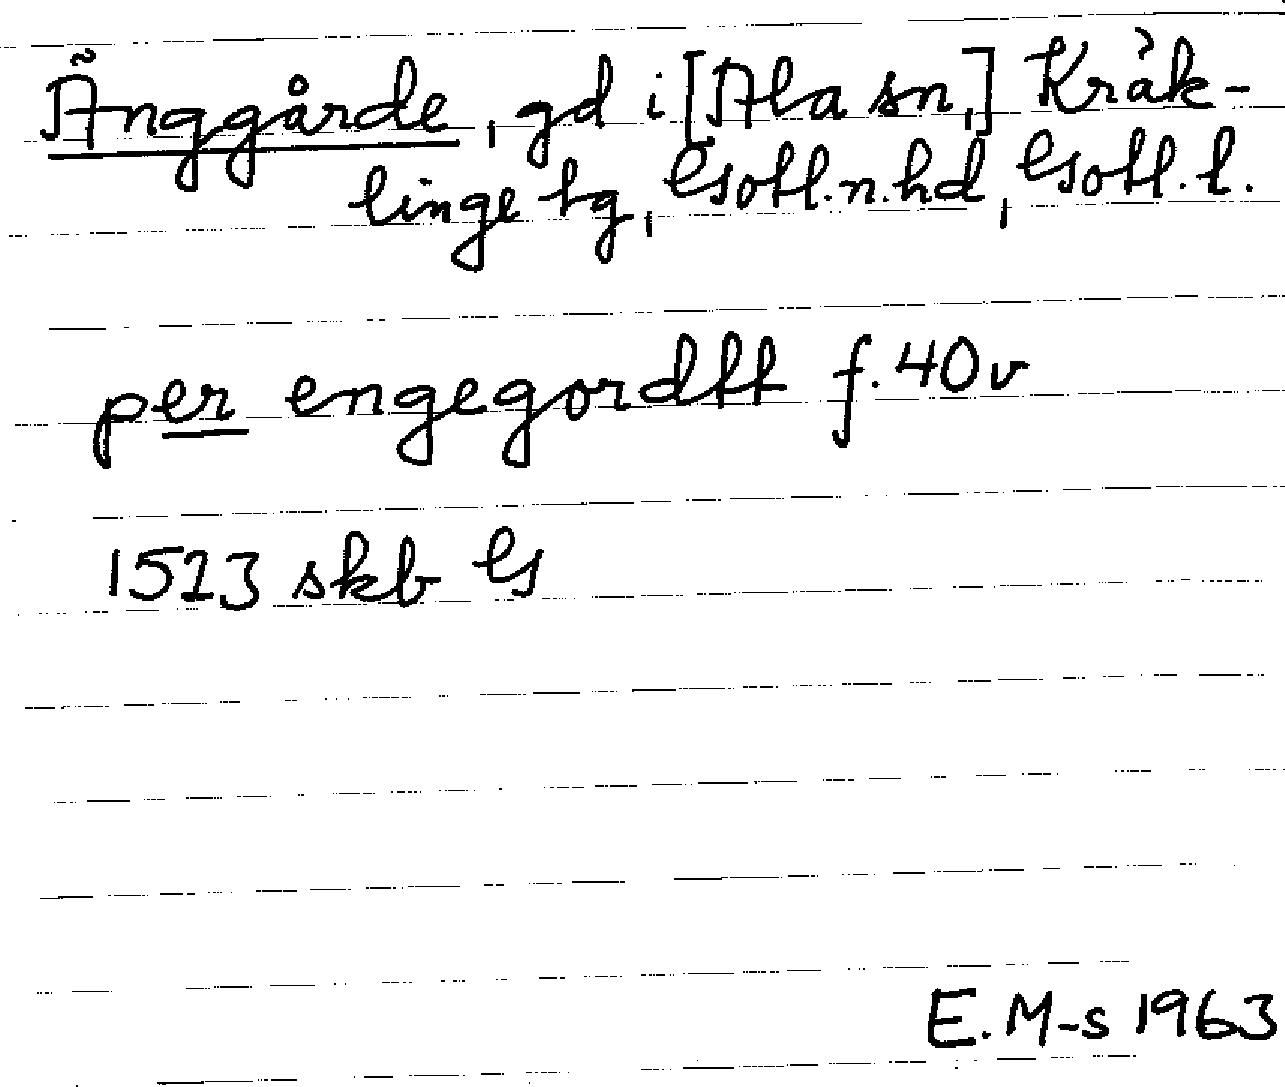 Änggårde, gd i [Ala sn,] Kräk-
linge tg, Gotl.n.hd, Gotl.l.
per engegordtt f.40v
1523 skb G
E.M-s 1963